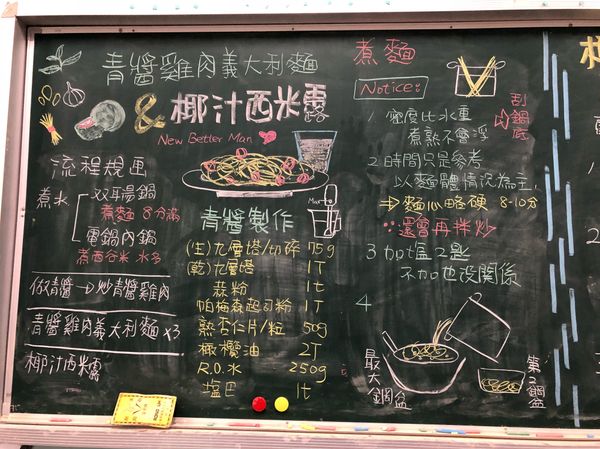 青醬雞肉義大利麵
& 椰汁西米露
New Better Man
流程規畫
煮水
双耳湯鍋
煮麵 8分滿
電鍋內鍋
煮西谷米 水多
做青醬→炒青醬雞肉
青醬雞肉義大利麵x3
椰汁西米露
青醬製作
(生)九層塔/切碎 75g
(乾)九層塔 1T
蒜粉 1t
帕梅森起司粉 1T
熟杏仁片/粒 50g
橄欖油 2T
R.O.水 250g
塩巴 1t
煮麵
Notice:
1. 密度比水重
煮熟不會浮
刮鍋底
2 時間只是參考
以麵體情況為主,
⇒麵心略硬 8-10分
還會再拌炒
3 加塩2匙
不加也沒関係
4
最大鋼盆
第2鋼盆